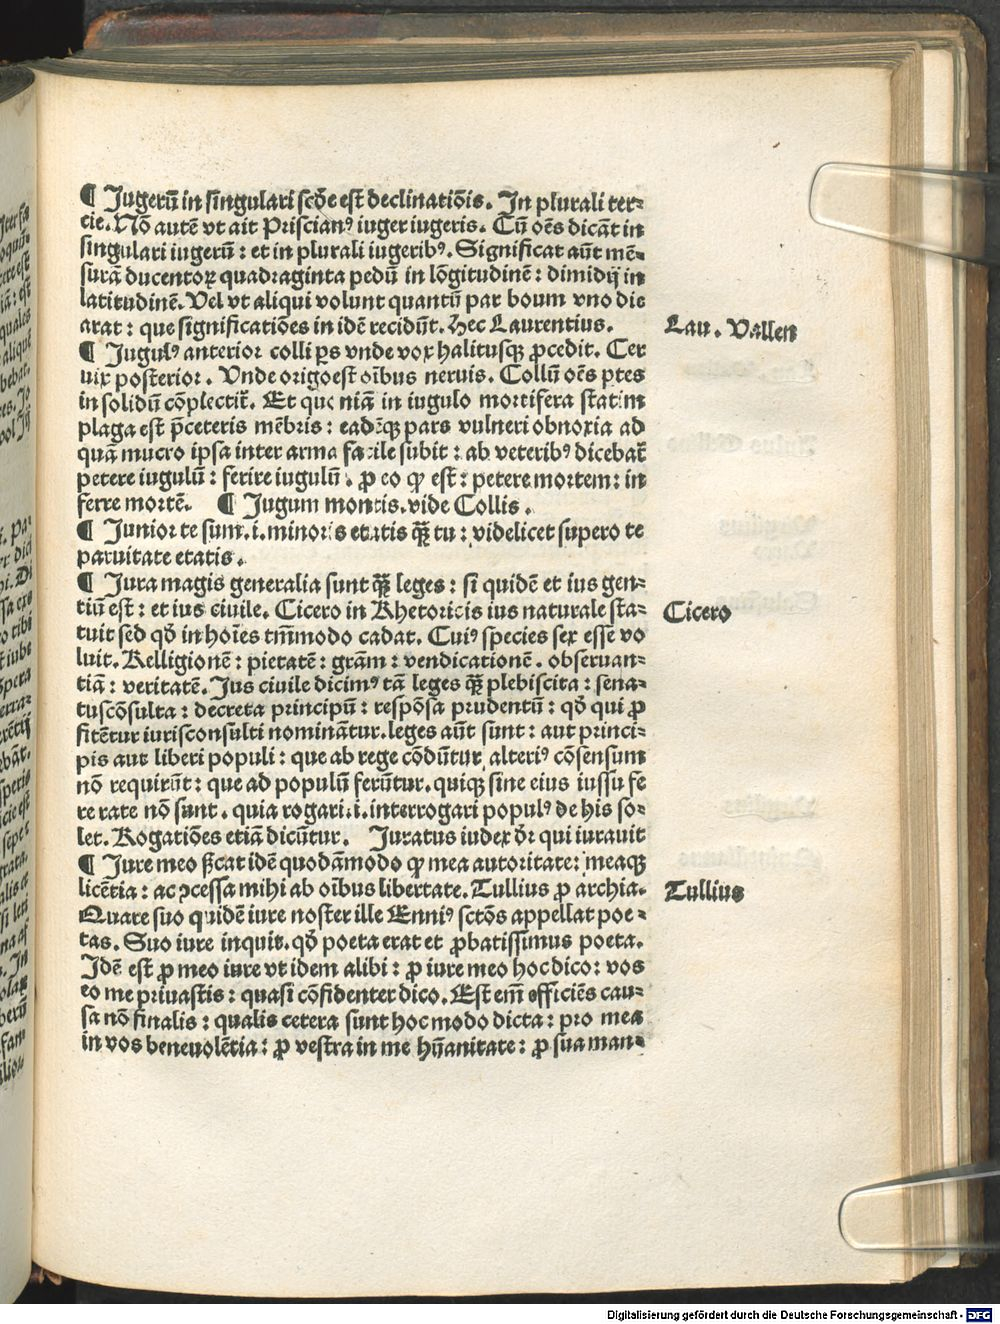 ¶ Jugerū in singulari scḋe est declinatiōis. In plurali ter⸗
tie. Nō autē vt ait Priscianꝰ iuger iugeris. Cū oēs dicāt in
singulari iugerū : et in plurali iugeribꝰ. Significat aūt mē⸗
surā ducentoꝝ quadraginta pedū in lōgitudinē : dimidij in
latitudinē. Vel vt aliqui volunt quantū par boum vno die
arat : que significatiōes in idē recidūt. Hec Laurentius.
Lau. Vallen
¶ Jugulꝰ anterior colli ꝑs vnde vox halitusqꝫ ꝓcedit. Cer
uix posterior. Vnde origo est oībus neruis. Collū oēs ꝑtes
in solidū cōplectit̃. Et quoniā in iugulo mortifera statim
plaga est p̄ceteris mēbris : eadēqꝫ pars vulneri obnoxia ad
quā mucro ipsa inter arma facile subit : ab veteribꝰ dicebat̃
petere iugulū : ferire iugulū . ꝓ eo ꝙ est : petere mortem : in
ferre mortē. ¶ Jugum montis. vide Collis.
¶ Junior te sum. i. minoris etatis qꝫ̄ tu : videlicet supero te
paruitate etatis.
¶ Jura magis generalia sunt qꝫ̄ leges : si quidē et ius gen⸗
tiū est : et ius ciuile. Cicero in Rhetoricis ius naturale sta⸗
Cicero
tuit sed qḋ in hoīes tm̄modo cadat. Cuiꝰ species sex esse vo
luit. Relligionē : pietatē : grām : vendicationē. obseruan⸗
tiā : veritatē. Jus ciuile dicimꝰ tā leges qꝫ̄ plebiscita : sena⸗
tuscōsulta : decreta principū : respōsa prudentū : qḋ qui ꝓ
fitētur iurisconsulti nominātur. leges aūt sunt : aut princi⸗
pis aut liberi populi : que ab rege cōdūtur alteriꝰ cōsensum
nō requirūt : que ad populū ferūtur. quiqꝫ sine eius iussu fe
re rate nō sunt . quia rogari. i. interrogari populꝰ de his so⸗
let. Rogatiōes etiā dicūtur. Juratus iudex dr̄ qui iurauit
¶ Jure meo sḡcat idē quodāmodo ꝙ mea autoritate : meaqꝫ
licētia : ac ↄcessa mihi ab oībus libertate. Tullius ꝓ archia.
Tullius
Quare suo quidē iure noster ille Enniꝰ sctōs appellat poe⸗
tas. Suo iure inquit. qḋ poeta erat et ꝓbatissimus poeta.
Idē est ꝓ meo iure vt idem alibi : ꝓ iure meo hoc dico : vos
eo me priuastis : quasi cōfidenter dico. Est em̄ efficiēs cau⸗
sa nō finalis : qualis cetera sunt hoc modo dicta : pro mea
in vos beneuolētia : ꝓ vestra in me hūanitate : ꝓ sua man⸗
Digitalisierung gefördert durch die Deutsche Forschungsgemeinschaft - DFG